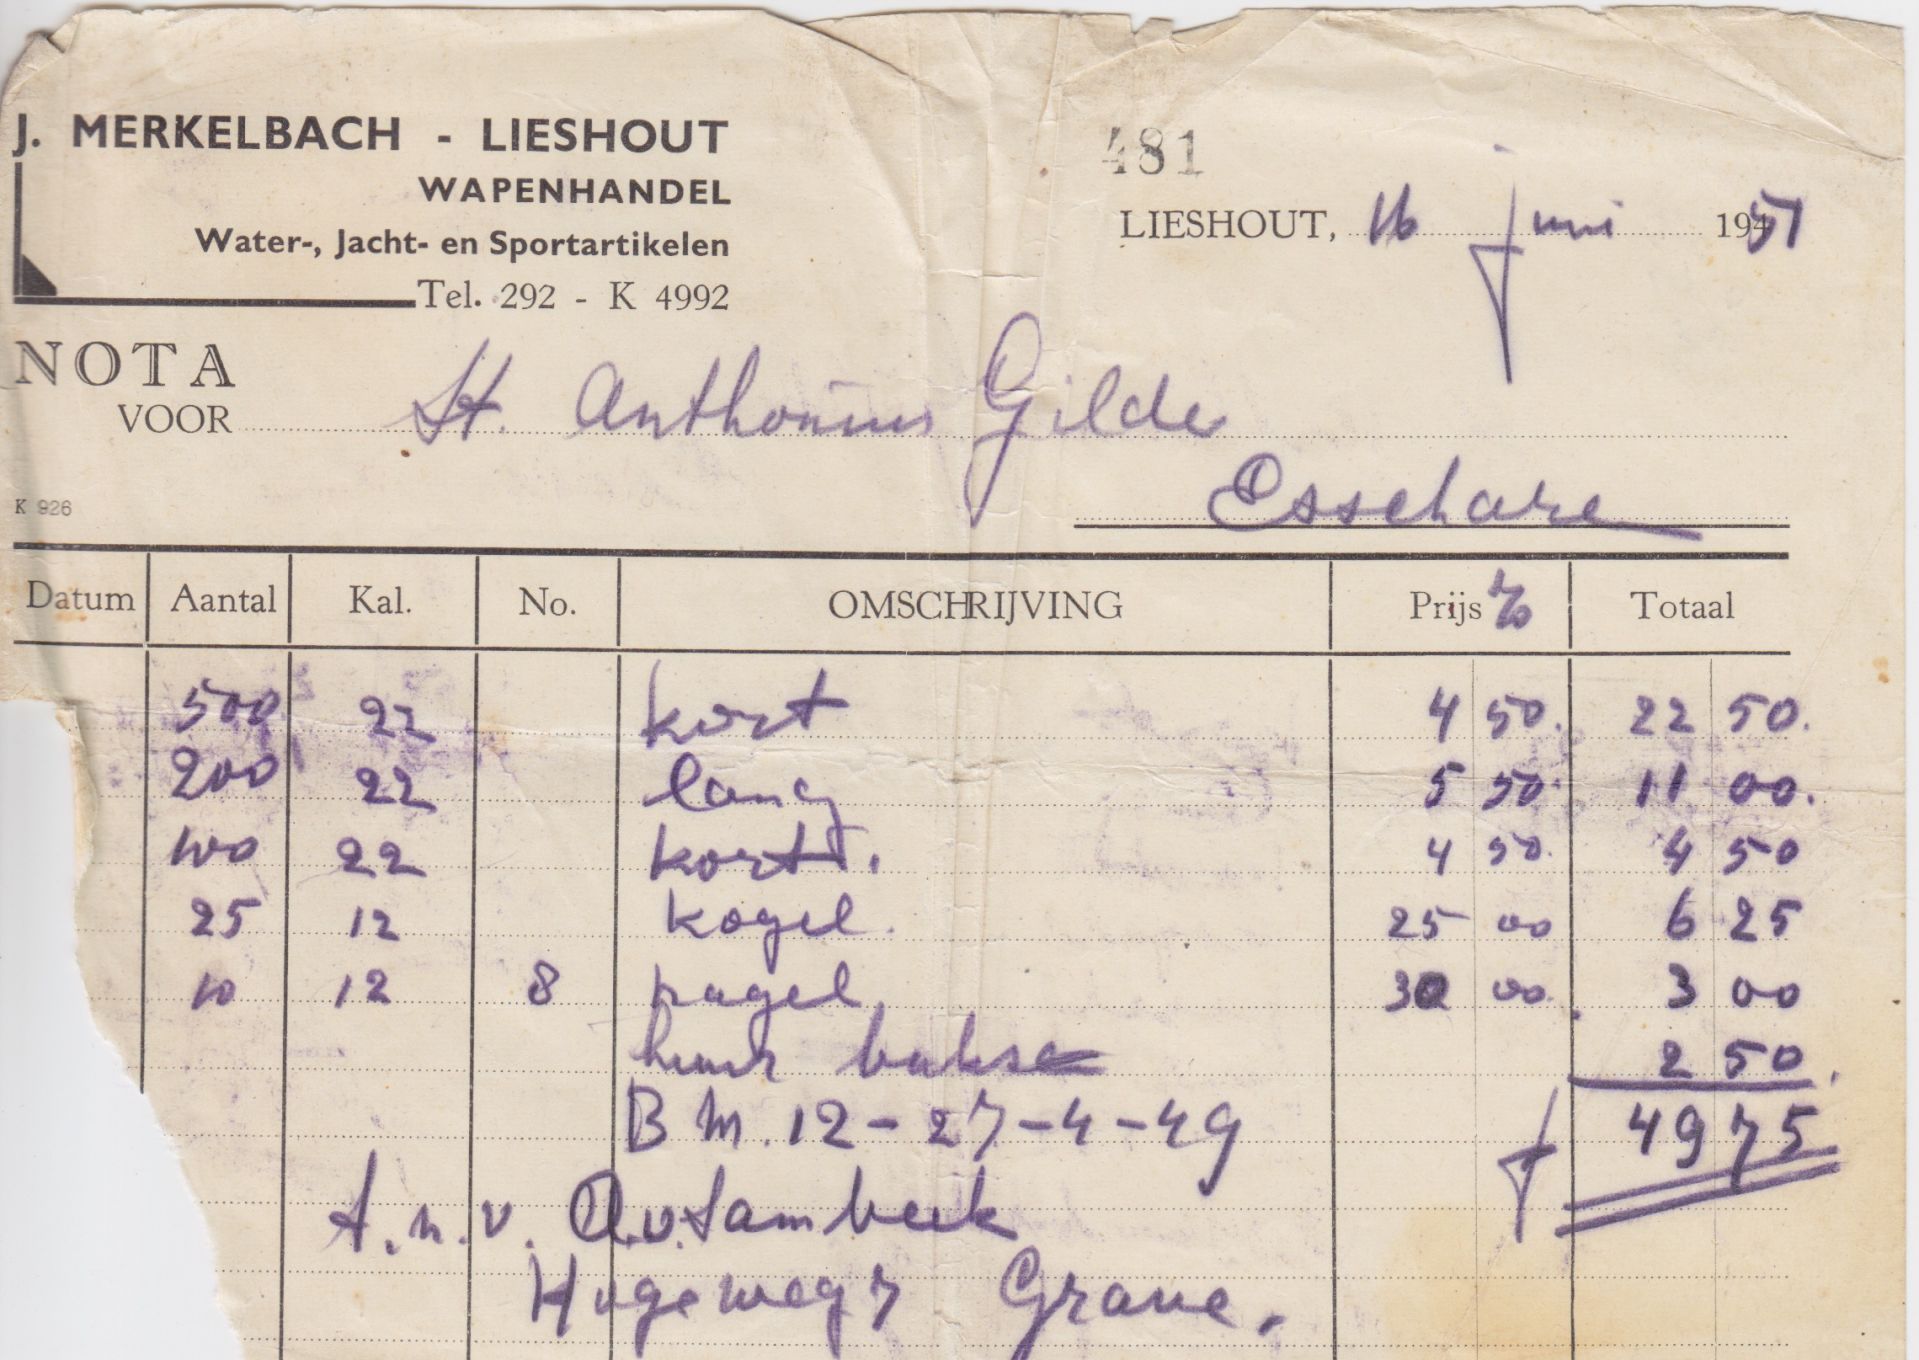 J. MERKELBACH - LIESHOUT
WAPENHANDEL
Water-, Jacht- en Sportartikelen
Tel. 292 - K 4992
481
LIESHOUT, 16 juni 1951
NOTA
VOOR St. Anthonius Gilde
Esscharen
K 926
Datum Aantal Kal. No. OMSCHRIJVING Prijs % Totaal
500 22 kort 4 50. 22 50.
200 22 lang 5 50. 11 00.
100 22 kort. 4 50. 4 50
25 12 kogel. 25 00 6 25
10 12 8 hagel. 30 00. 3 00
huur buks 2 50.
B M. 12-27-4-49 f 49 75
t.n.v. A.v. Sambeek
Hogeweg 7 Grave.